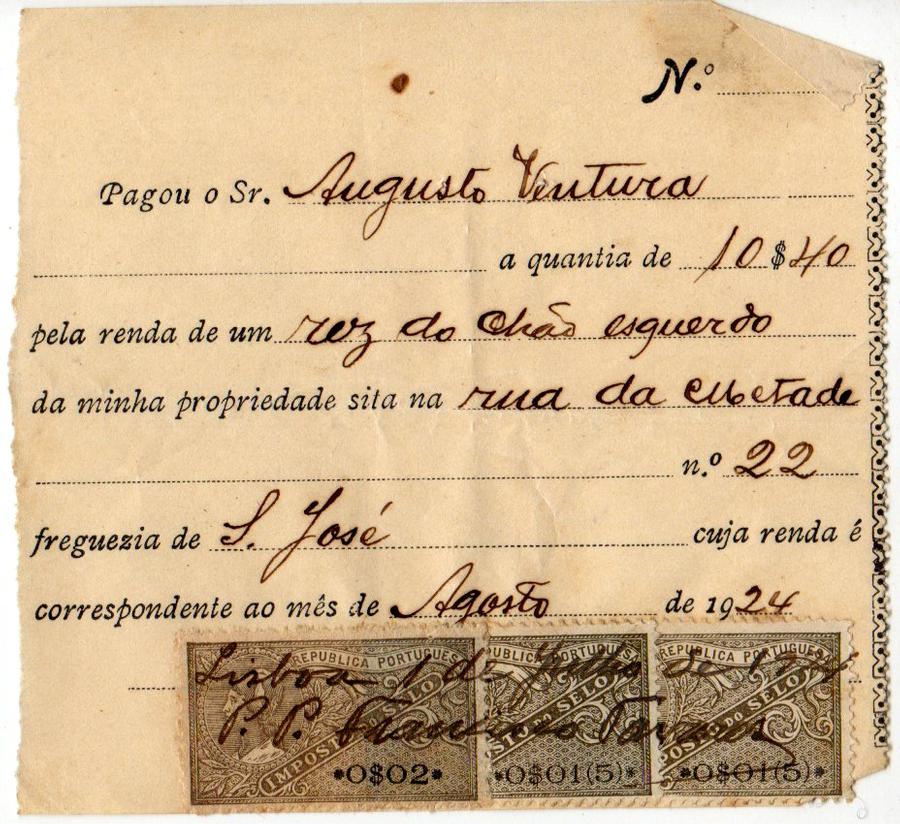 N.º
Pagou o Sr. Augusto Ventura
a quantia de 10$40
pela renda de um rez do chão esquerdo
da minha propriedade sita na rua da Metade
n.º 22
freguezia de S. José cuja renda é
correspondente ao mês de Agosto de 1924
REPUBLICA PORTUGUESA REPUBLICA PORTUGUESA REPUBLICA PORTUGUESA
Lisboa 1 de Julho de 1924
P. P. Francisco
IMPOSTO DO SELO IMPOSTO DO SELO IMPOSTO DO SELO
0$02 0$01(5) 0$01(5)